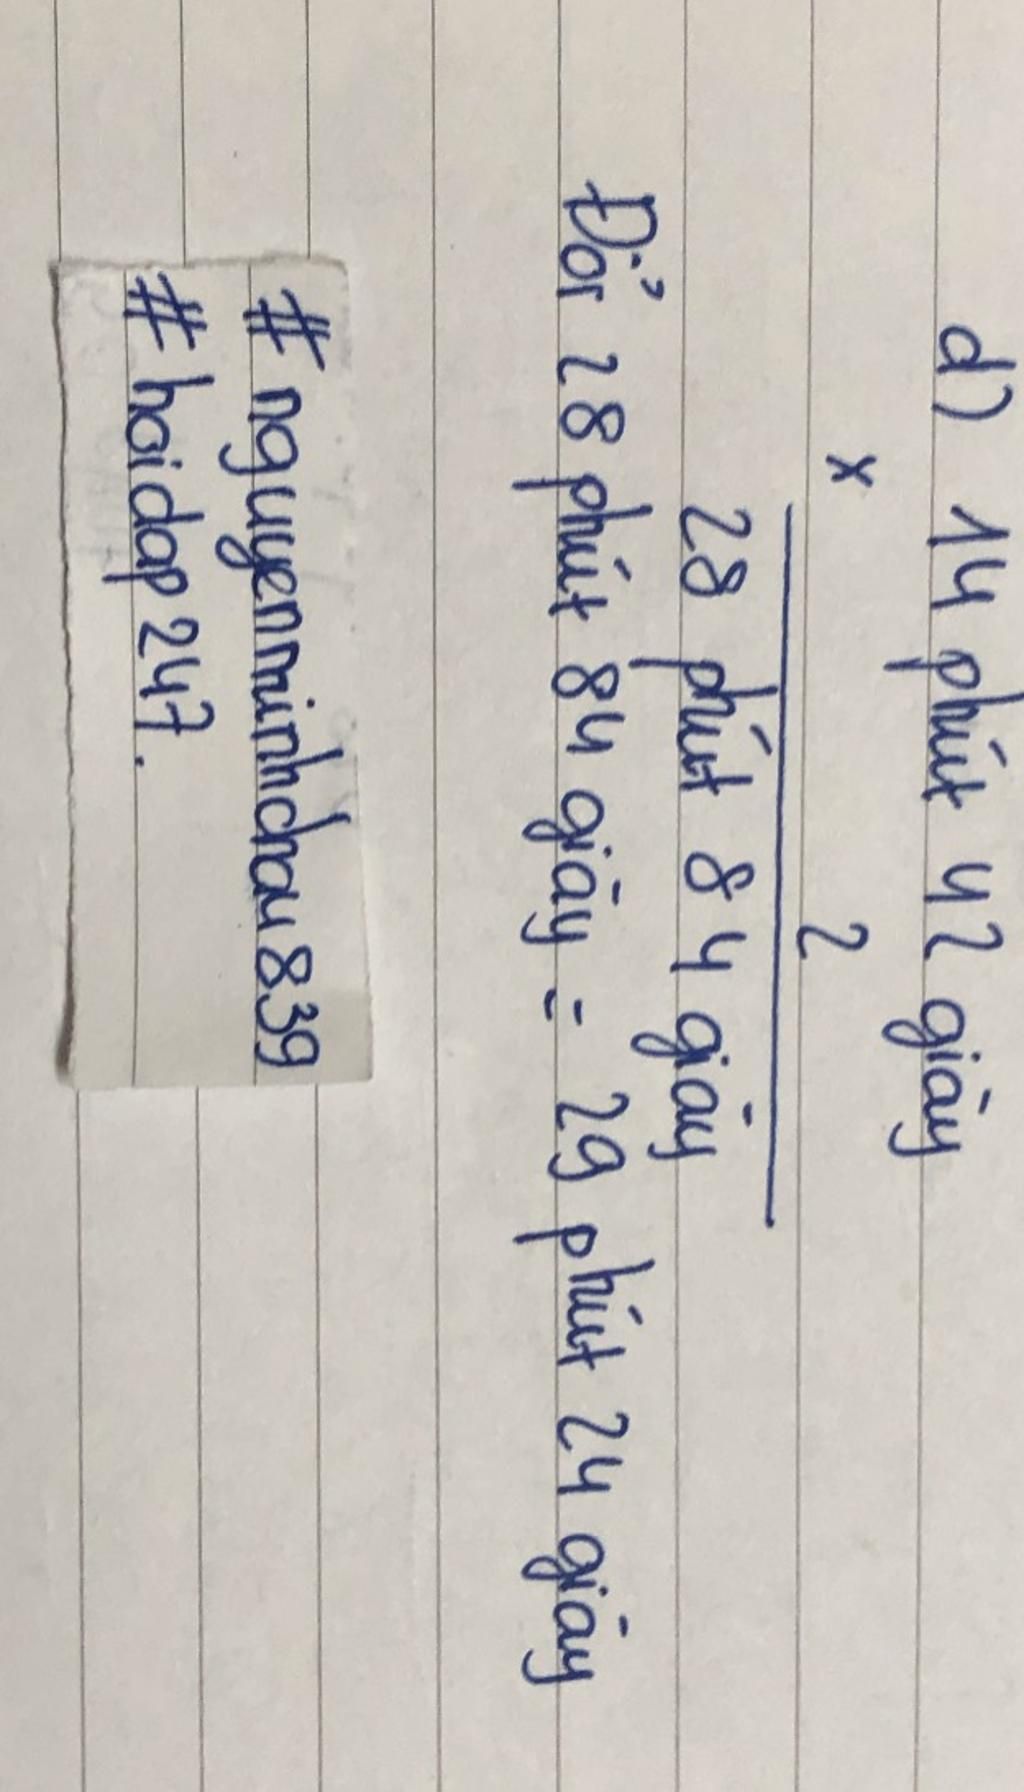 d) 14 phút 42 giây
x
2
28 phút 84 giây
Đổi 28 phút 84 giây = 29 phút 24 giây
# nguyenminhchau839
# hoidap247.